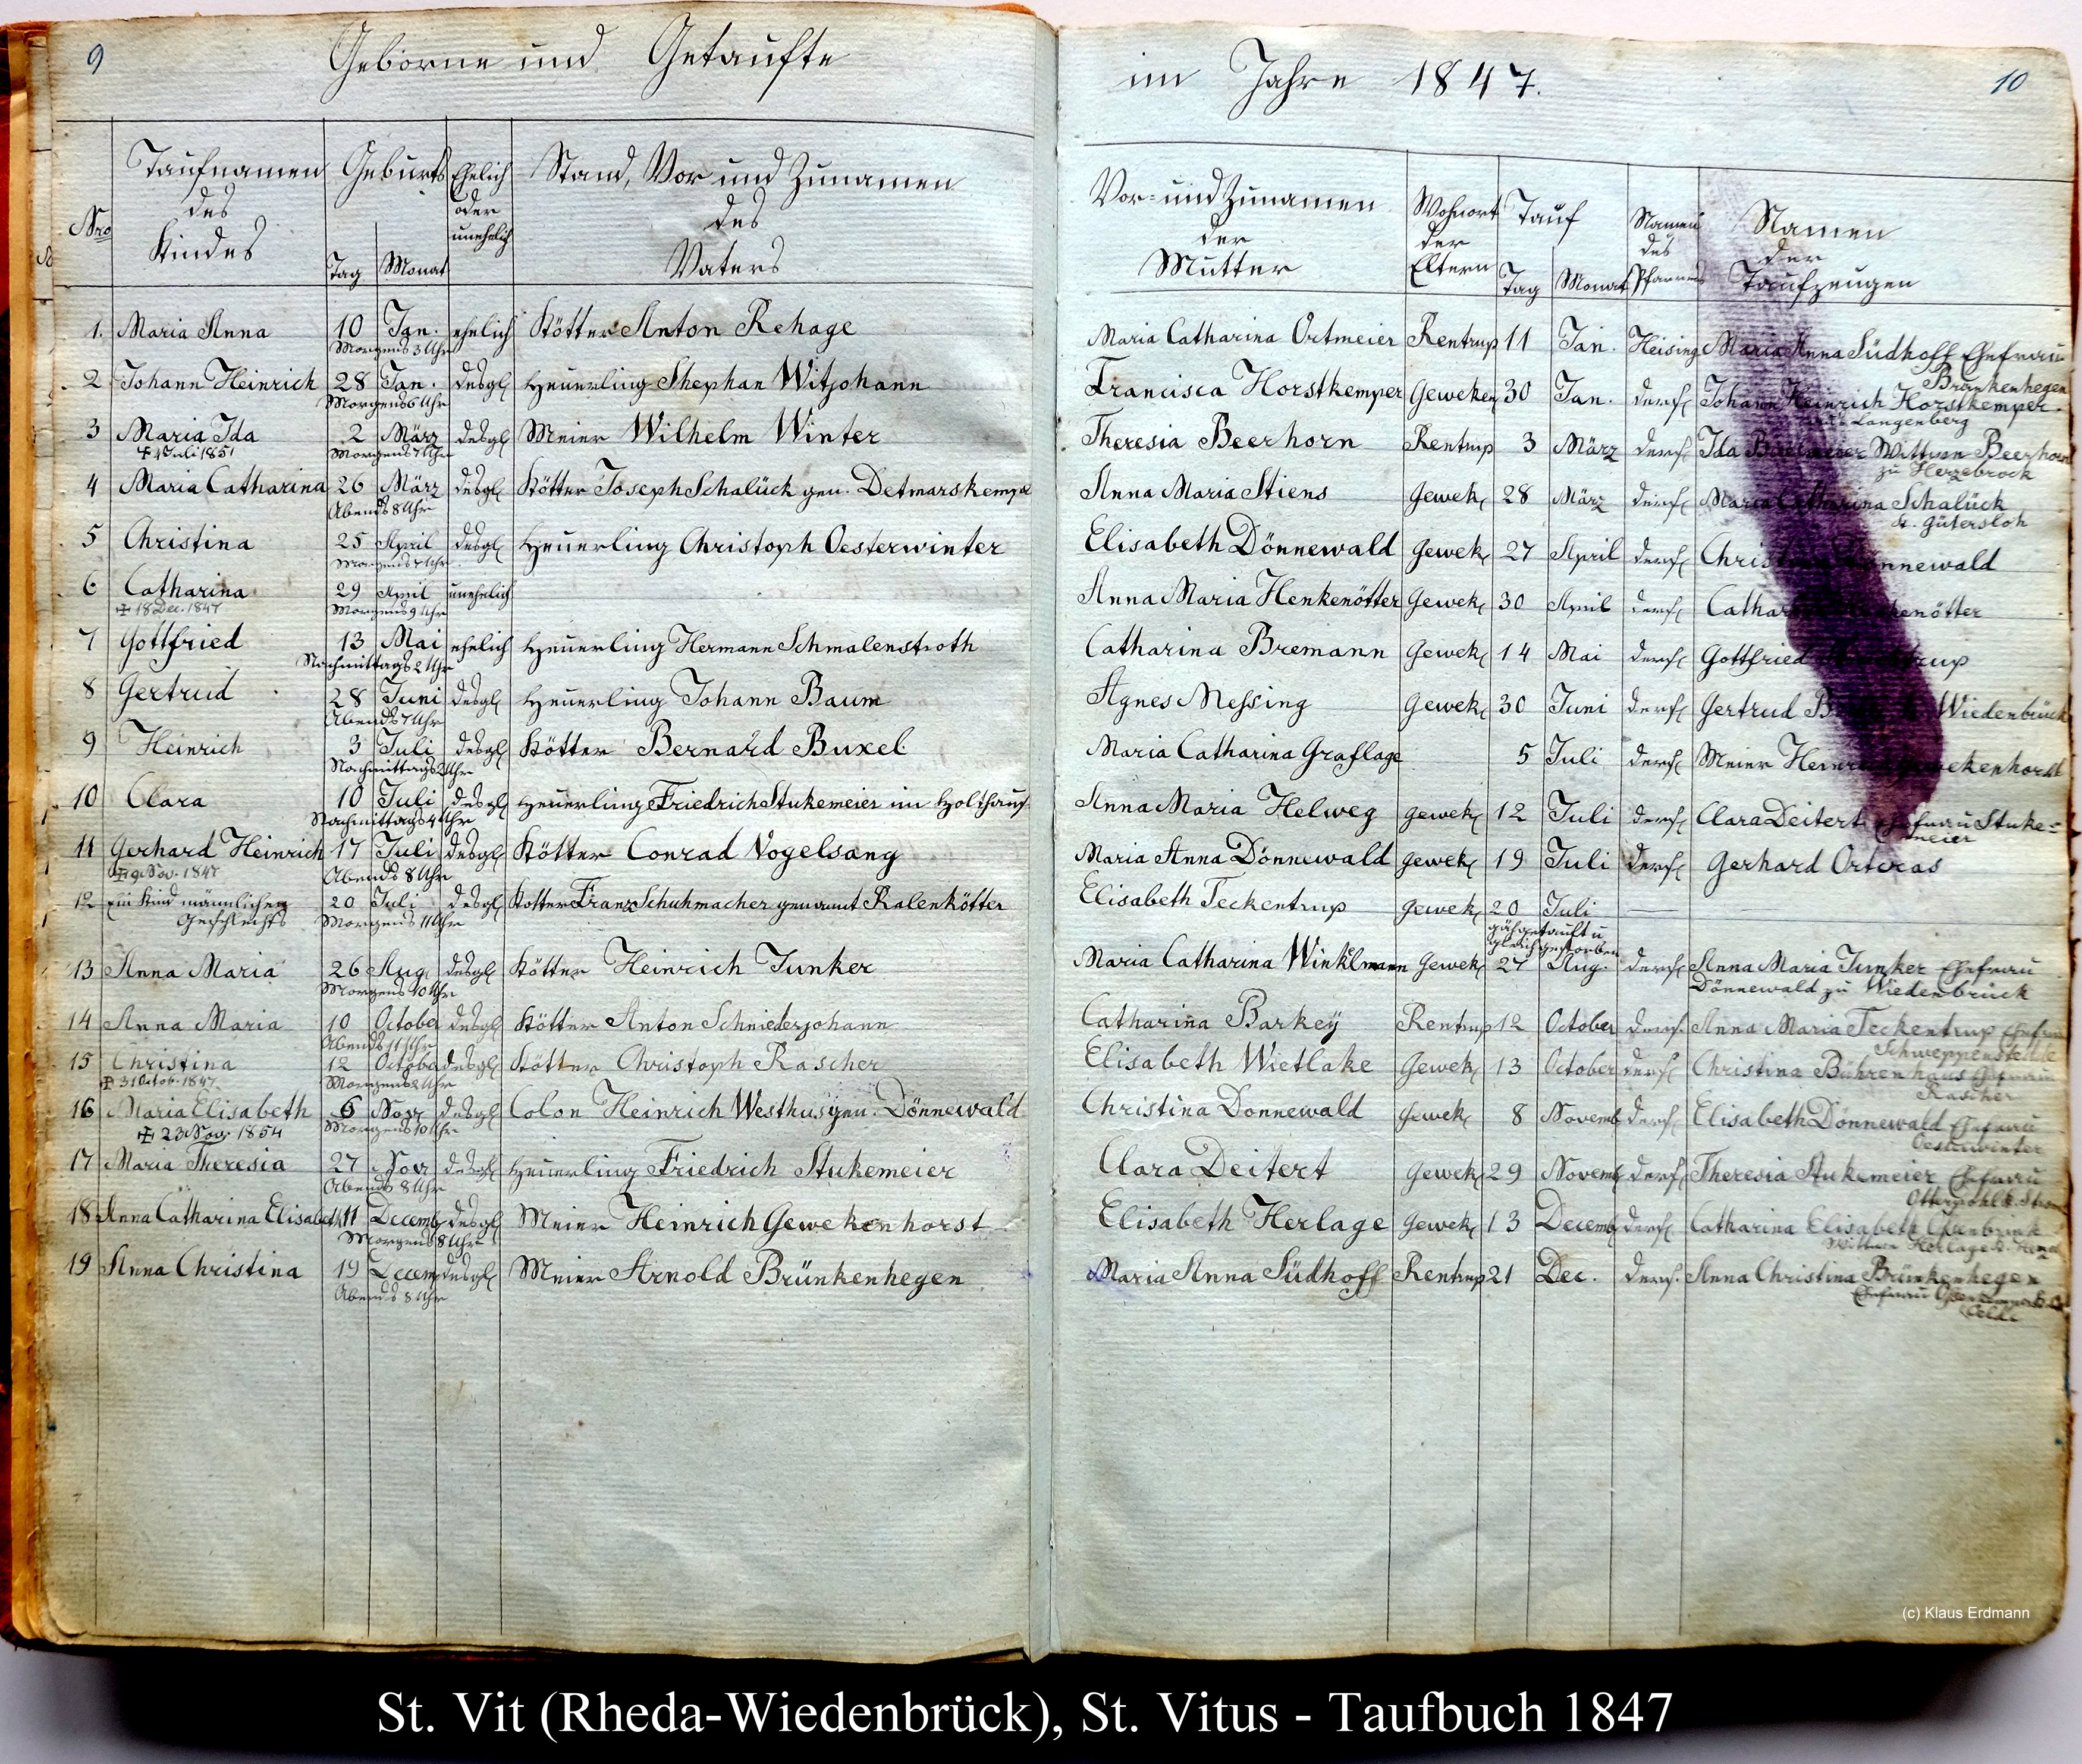 9
Geborne und Getaufte
im Jahre 1847.
10
Nro
Taufnamen des Kindes
Geburts
Tag
Monat
Ehelich oder unehelich
Stand, Vor und Zunamen des Vaters
Vor- und Zunamen der Mutter
Wohnort der Eltern
Tauf
Tag
Monat
Namen des Pfarrers
Namen der Taufzeugen
1. Maria Anna 10 Jan. ehelich Kötter Anton Rehage Maria Catharina Ortmeier Rentrup 11 Jan. Heising Maria Anna Südhoff Ehefrau
Morgens 3 Uhr Brünkenhegen
2 Johann Heinrich 28 Jan. desgl Heuerling Stephan Witjohann Francisca Horstkemper Geweken 30 Jan. ders. Johann Heinrich Horstkemper
Morgens 6 Uhr Langenberg
3 Maria Ida 2 März desgl Meier Wilhelm Winter Theresia Beerhorn Rentrup 3 März ders. Ida Wittwe Beerhorn
+ 4 Juli 1851 Morgens 7 Uhr zu Herzebrock
4 Maria Catharina 26 März desgl Kötter Joseph Schalück gen. Detmarskemper Anna Maria Stiens Gewek. 28 März ders. Maria Catharina Schalück
Abends 8 Uhr k. Gütersloh
5 Christina 25 April desgl Heuerling Christoph Oesterwinter Elisabeth Dönnewald Gewek. 27 April ders. Christina Dönnewald
Morgens 7 Uhr
6 Catharina 29 April unehelich Anna Maria Henkenötter Gewek. 30 April ders. Catharina Henkenötter
+ 18 Dec. 1847 Morgens 9 Uhr
7 Gottfried 13 Mai ehelich Heuerling Hermann Schmalenstroth Catharina Bremann Gewek. 14 Mai ders. Gottfried
Nachmittags 2 Uhr
8 Gertrud 28 Juni desgl Heuerling Johann Baum Agnes Meßing Gewek. 30 Juni ders. Gertrud Wiedenbrück
Abends 7 Uhr
9 Heinrich 3 Juli desgl Kötter Bernard Buxel Maria Catharina Graflage 5 Juli ders. Meier Heinrich Gewekenhorst
Nachmittags 2 Uhr
10 Clara 10 Juli desgl Heuerling Friedrich Stukemeier im Holthaus Anna Maria Helweg Gewek. 12 Juli ders. Clara Deitert Ehefrau Stuke=
Nachmittags 4 Uhr meier
11 Gerhard Heinrich 17 Juli desgl Kötter Conrad Vogelsang Maria Anna Dönnewald Gewek. 19 Juli ders. Gerhard Orteras
+ 9 Nov. 1847 Abends 8 Uhr
12 Ein Kind männlichen 20 Juli desgl Kötter Franz Schuhmacher genannt Kalenkötter Elisabeth Teckentrup Gewek. 20 Juli
Geschlechts Morgens 11 Uhr gähgetauft u
gleich gestorben
13 Anna Maria 26 Aug. desgl Kötter Heinrich Junker Maria Catharina Winkelmann Gewek. 27 Aug. ders. Anna Maria Junker Ehefrau
Morgens 10 Uhr Dönnewald zu Wiedenbrück
14 Anna Maria 10 October desgl Kötter Anton Schniederjohann Catharina Barkey Rentrup 12 October ders. Anna Maria Teckentrup Ehefrau
Abends 11 Uhr Schweppenstedde
15 Christina 12 October desgl Kötter Christoph Rascher Elisabeth Wietlake Gewek. 13 October ders. Christina Bührenhaus Ehefrau
+ 31 Octob. 1847 Morgens 2 Uhr Rascher
16 Maria Elisabeth 6 Nov desgl Colon Heinrich Westhus gen. Dönnewald Christina Donnewald Gewek. 8 Novemb ders. Elisabeth Dönnewald Ehefrau
+ 23 Nov. 1854 Morgens 10 Uhr Oesterwinter
17 Maria Theresia 27 Nov desgl Heuerling Friedrich Stukemeier Clara Deitert Gewek. 29 Novemb ders. Theresia Stukemeier Ehefrau
Abends 8 Uhr
18 Anna Catharina Elisabeth 11 Decemb desgl Meier Heinrich Gewekenhorst Elisabeth Herlage Gewek. 13 Decemb ders. Catharina Elisabeth
Morgens 8 Uhr Wittwe Herlage
19 Anna Christina 19 Decem desgl Meier Arnold Brünkenhegen Maria Anna Südhoff Rentrup 21 Dec. ders. Anna Christina Brünkenhegen
Abends 8 Uhr Ehefrau
Oelde
(c) Klaus Erdmann
St. Vit (Rheda-Wiedenbrück), St. Vitus - Taufbuch 1847